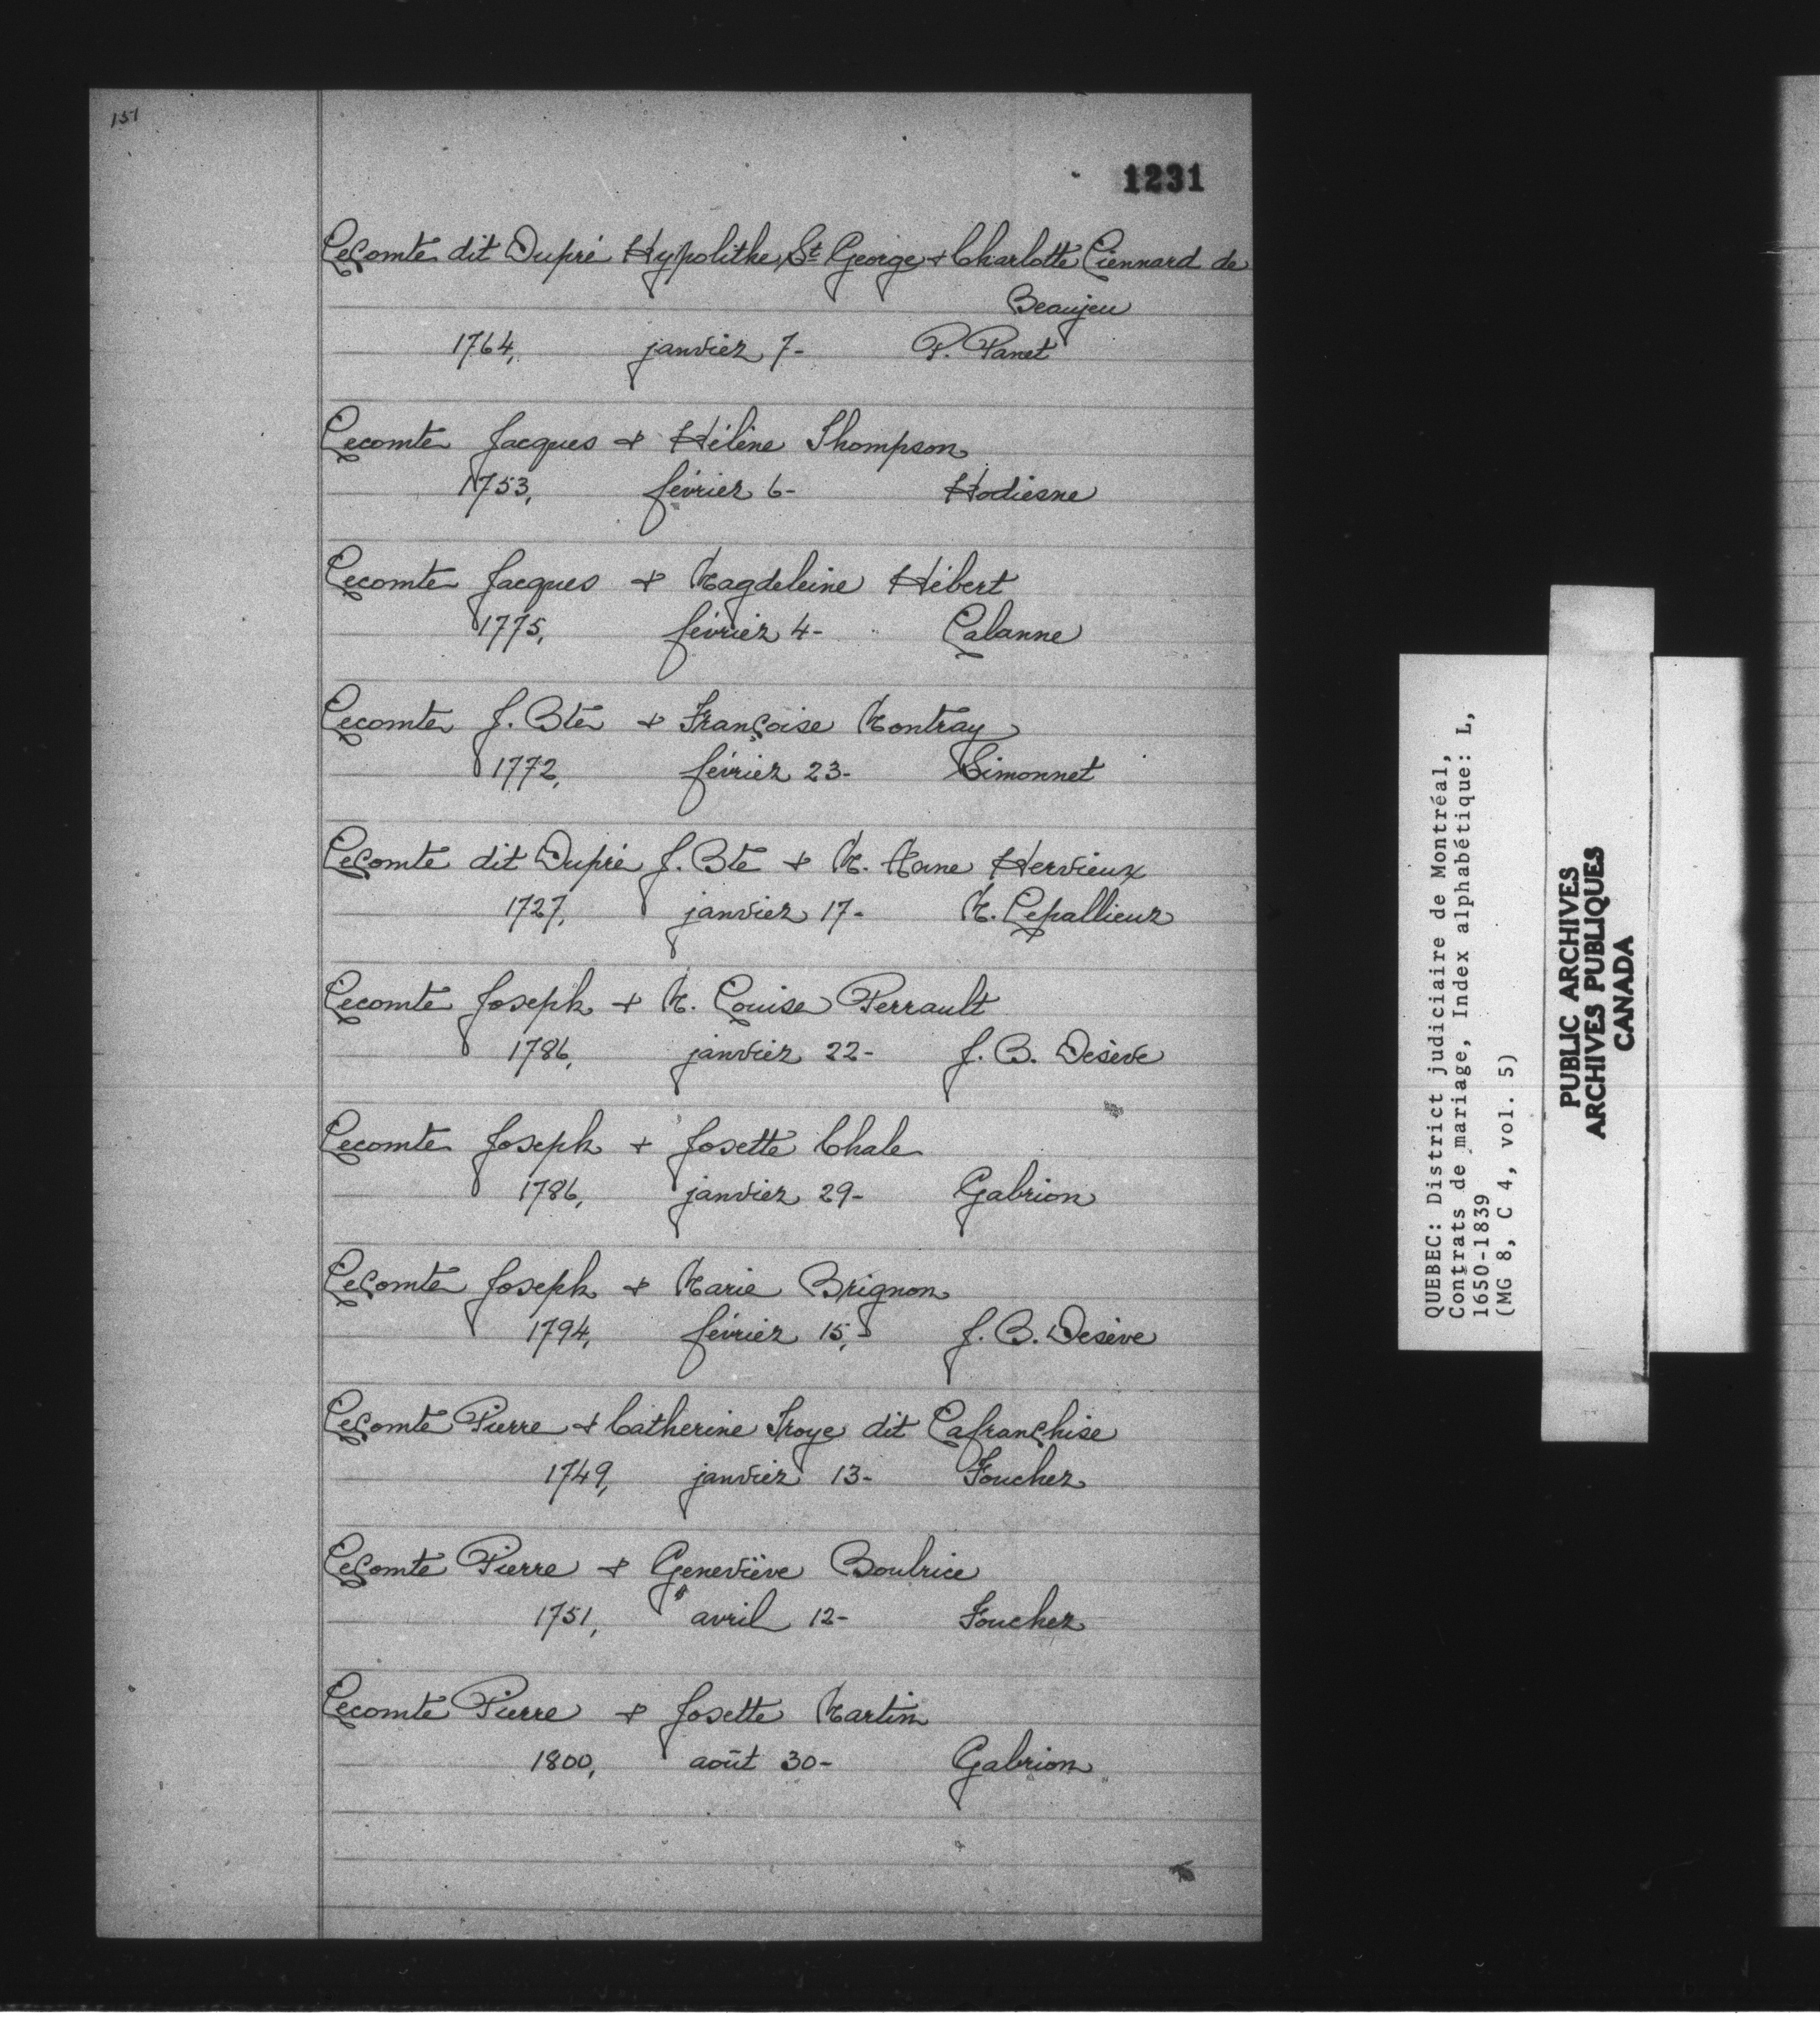 151
1231
LeComte dit Dupré Hypolithe St George & Charlotte Liennard de
Beaujeu
1764, janvier 7- P. Panet
Lecomte Jacques & Hélène Thompson
1753, février 6- Hodiesne
Lecomte Jacques & Magdeleine Hébert
1775, février 4- Lalanne
Lecomte J. Bte & Françoise Montray
1772, février 23- Simonnet
LeComte dit Dupré J. Bte & M. Anne Hervieux
1727, janvier 17- M. Lepallieur
Lecomte Joseph & M. Louise Perrault
1786, janvier 22- J. B. Desève
Lecomte Joseph & Josette Chale
1786, janvier 29- Gabrion
LeComte Joseph & Marie Brignon
1794, février 15, J. B. Desève
LeComte Pierre & Catherine Troye dit Lafranchise
1749, janvier 13- Foucher
LeComte Pierre & Geneviève Boulrice
1751, avril 12- Foucher
Lecomte Pierre & Josette Martin
1800, août 30- Gabrion
QUEBEC: District judiciaire de Montréal,
Contrats de mariage, Index alphabétique: L,
1650-1839
(MG 8, C 4, vol. 5)
PUBLIC ARCHIVES
ARCHIVES PUBLIQUES
CANADA